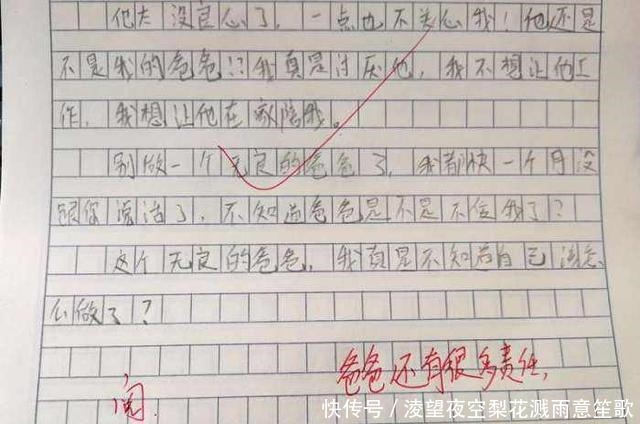 他太没良心了，一点也不关心我！他还是
不是我的爸爸!?我真是讨厌他，我不想让他工
作，我想让他在家陪我。
别做一个无良的爸爸了，我都快一个月没
跟你说话了，不知道爸爸是不是不信我了？
这个无良的爸爸，我真是不知道自己该怎
么做了？
爸爸还有很多责任，
阅
快传号/凌望夜空梨花溅雨意笙歌